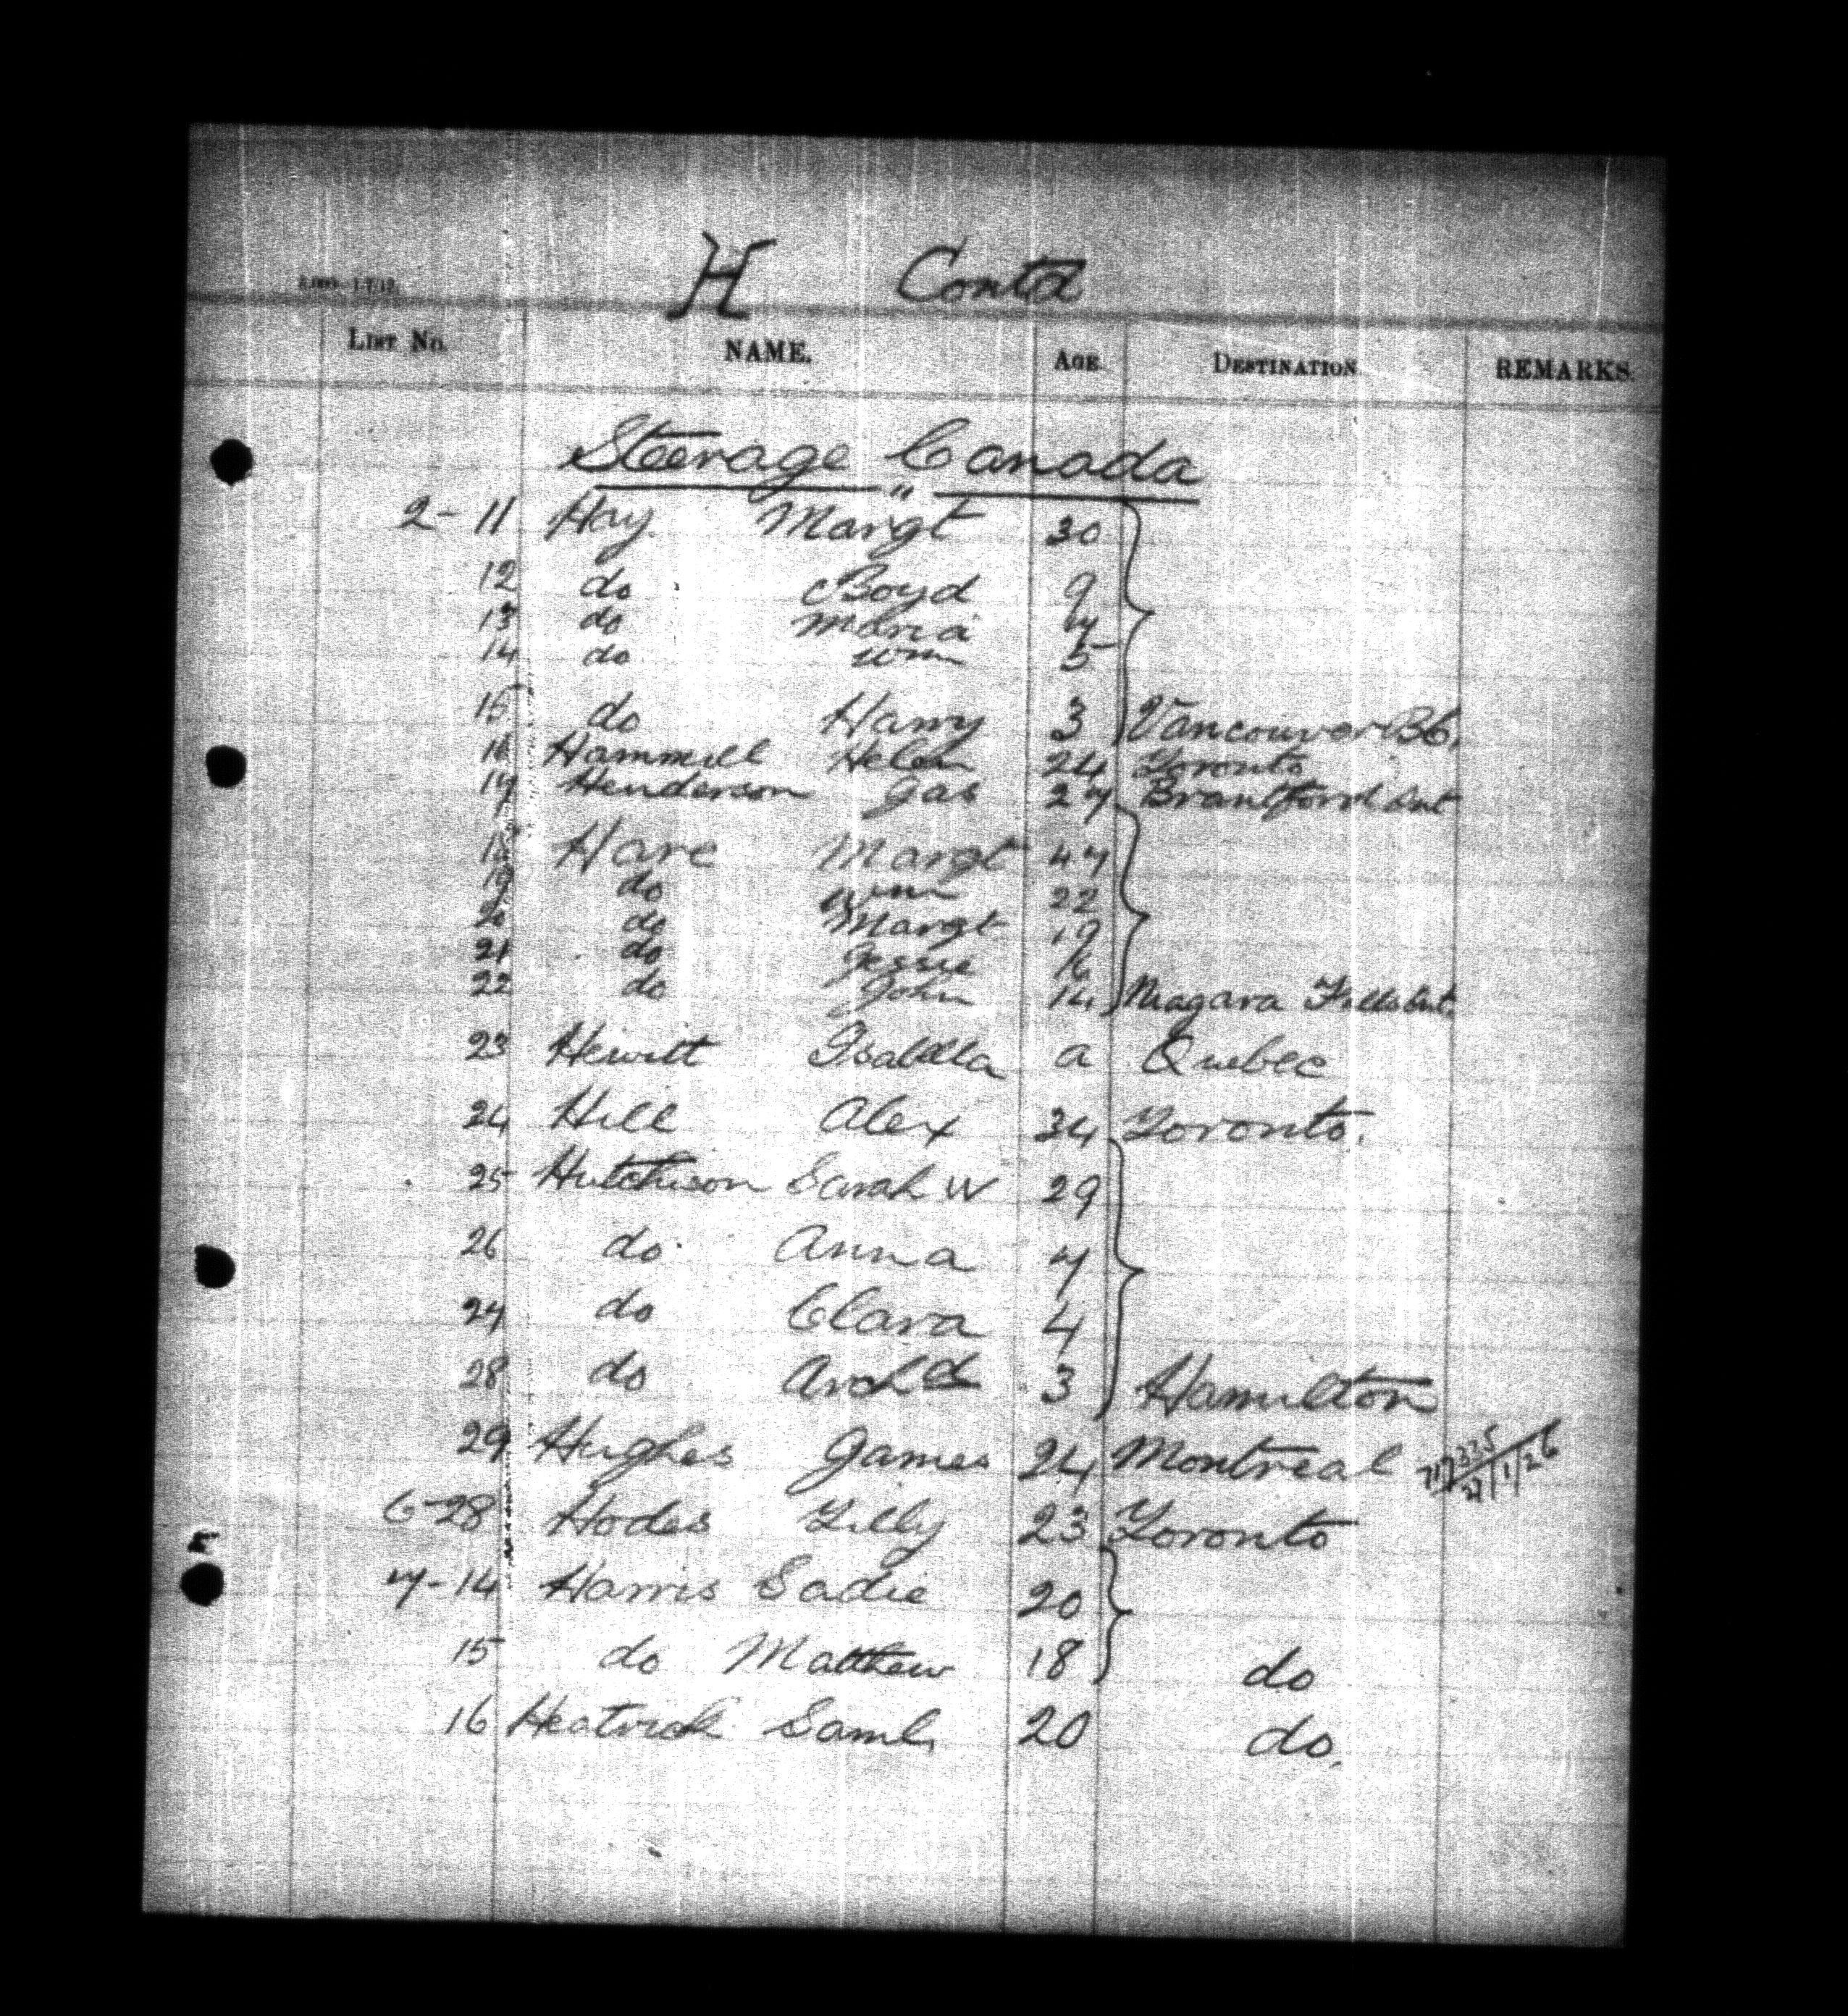 H Contd
LIST No. NAME. AGE. DESTINATION. REMARKS.
Steerage Canada
2-11 Hay Margt 30
12 do Boyd 9
13 do Maria 7
14 do Wm 5
15 do Harry 3 Vancouver BC.
16 Hammill Helen 24 Toronto
17 Henderson Jas 27 Brantford Ont
18 Hare Margt 47
19 do Wm 22
20 do Margt 19
21 do Jessie 16
22 do John 14 Niagara Falls Ont.
23 Hewitt Isabella a Quebec
24 Hill Alex 34 Toronto.
25 Hutchison Sarah W 29
26 do Anna 7
27 do Clara 4
28 do Archd 3 Hamilton
29 Hughes James 24 Montreal
6-28 Hodes Lilly 23 Toronto
7-14 Harris Sadie 20
15 do Matthew 18 do
16 Heatrick Saml. 20 do.